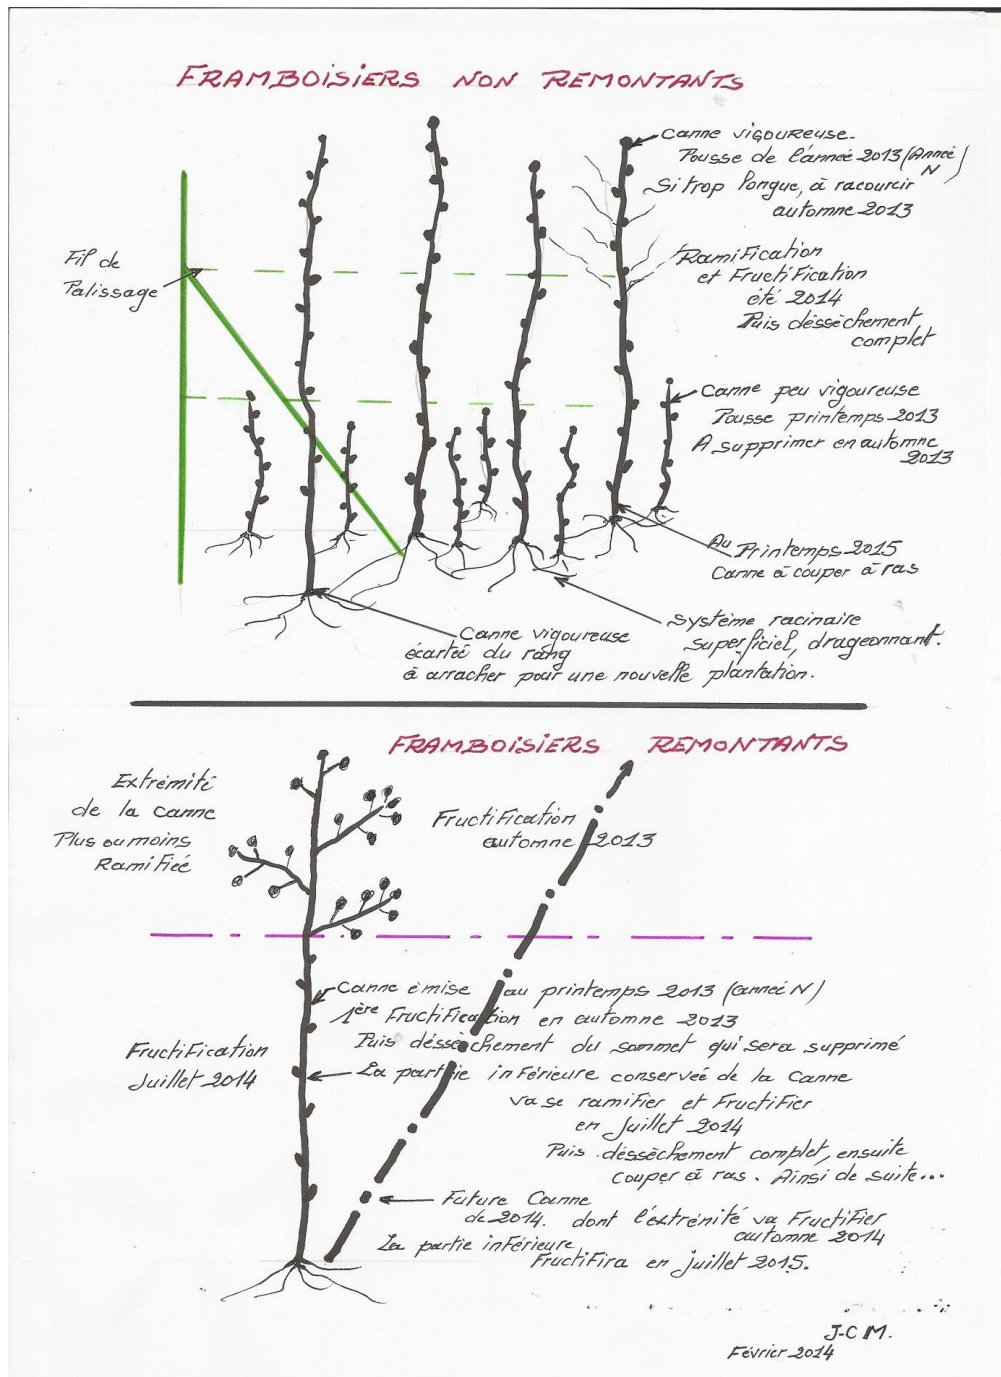 FRAMBOISIERS NON REMONTANTS
Canne vigoureuse.
Pousse de l'année 2013 (Année N)
Si trop longue, à racourcir
automne 2013
Fil de
Palissage
Ramification
et Fructification
été 2014
Puis déssèchement
complet
Canne peu vigoureuse
Pousse printemps 2013
A supprimer en automne
2013
Au Printemps 2015
Canne à couper à ras
Système racinaire
superficiel, drageonnant.
Canne vigoureuse
écartée du rang
à arracher pour une nouvelle plantation.
FRAMBOISIERS REMONTANTS
Extrémité
de la canne
Plus ou moins
Ramifiée
Fructification
automne 2013
Canne émise au printemps 2013 (année N)
1ère Fructification en automne 2013
Puis déssèchement du sommet qui sera supprimé
Fructification
Juillet 2014
La partie inférieure conservée de la canne
va se ramifier et Fructifier
en Juillet 2014
Puis déssèchement complet, ensuite
couper à ras. Ainsi de suite...
Future Canne
de 2014. dont l'extrénité va Fructifier
automne 2014
La partie inférieure
Fructifira en juillet 2015.
J-C M.
Février 2014